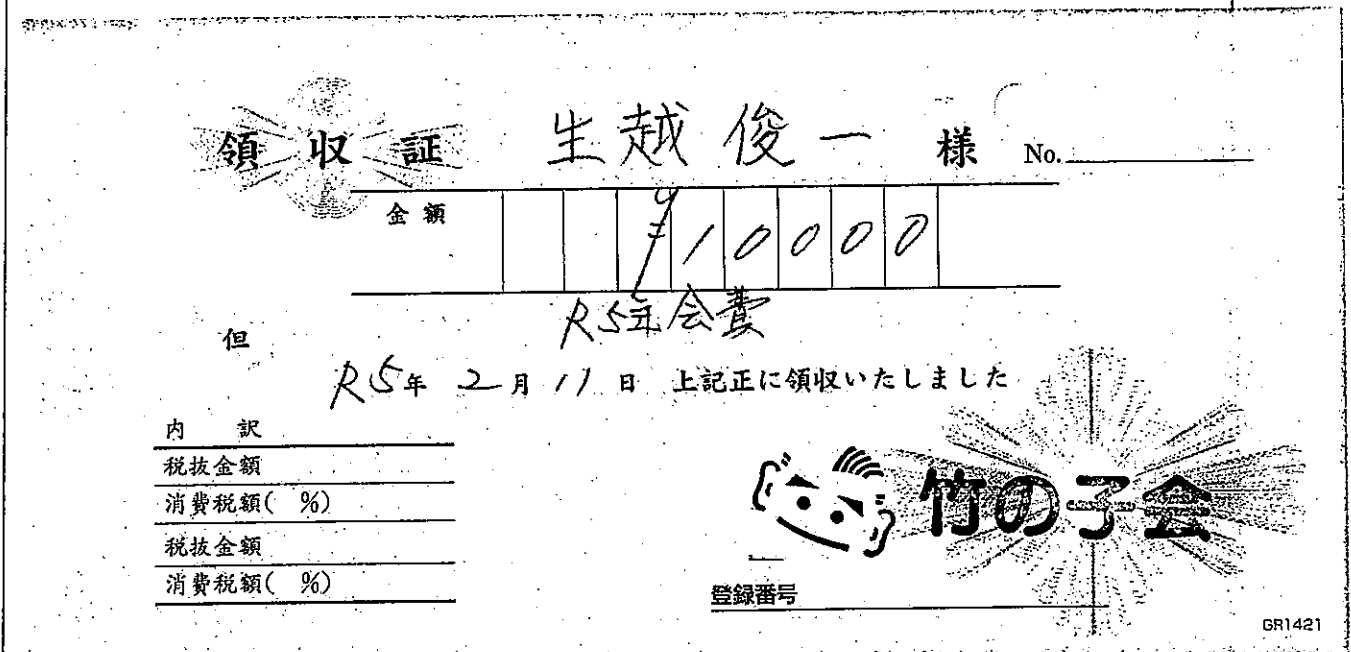 領収証 生越俊一 様 No.
金額 ¥10000
但 R5年会費
R5年 2月 11日 上記正に領収いたしました
内 訳
税抜金額
消費税額( %)
税抜金額
消費税額( %)
竹の子会
登録番号
GR1421